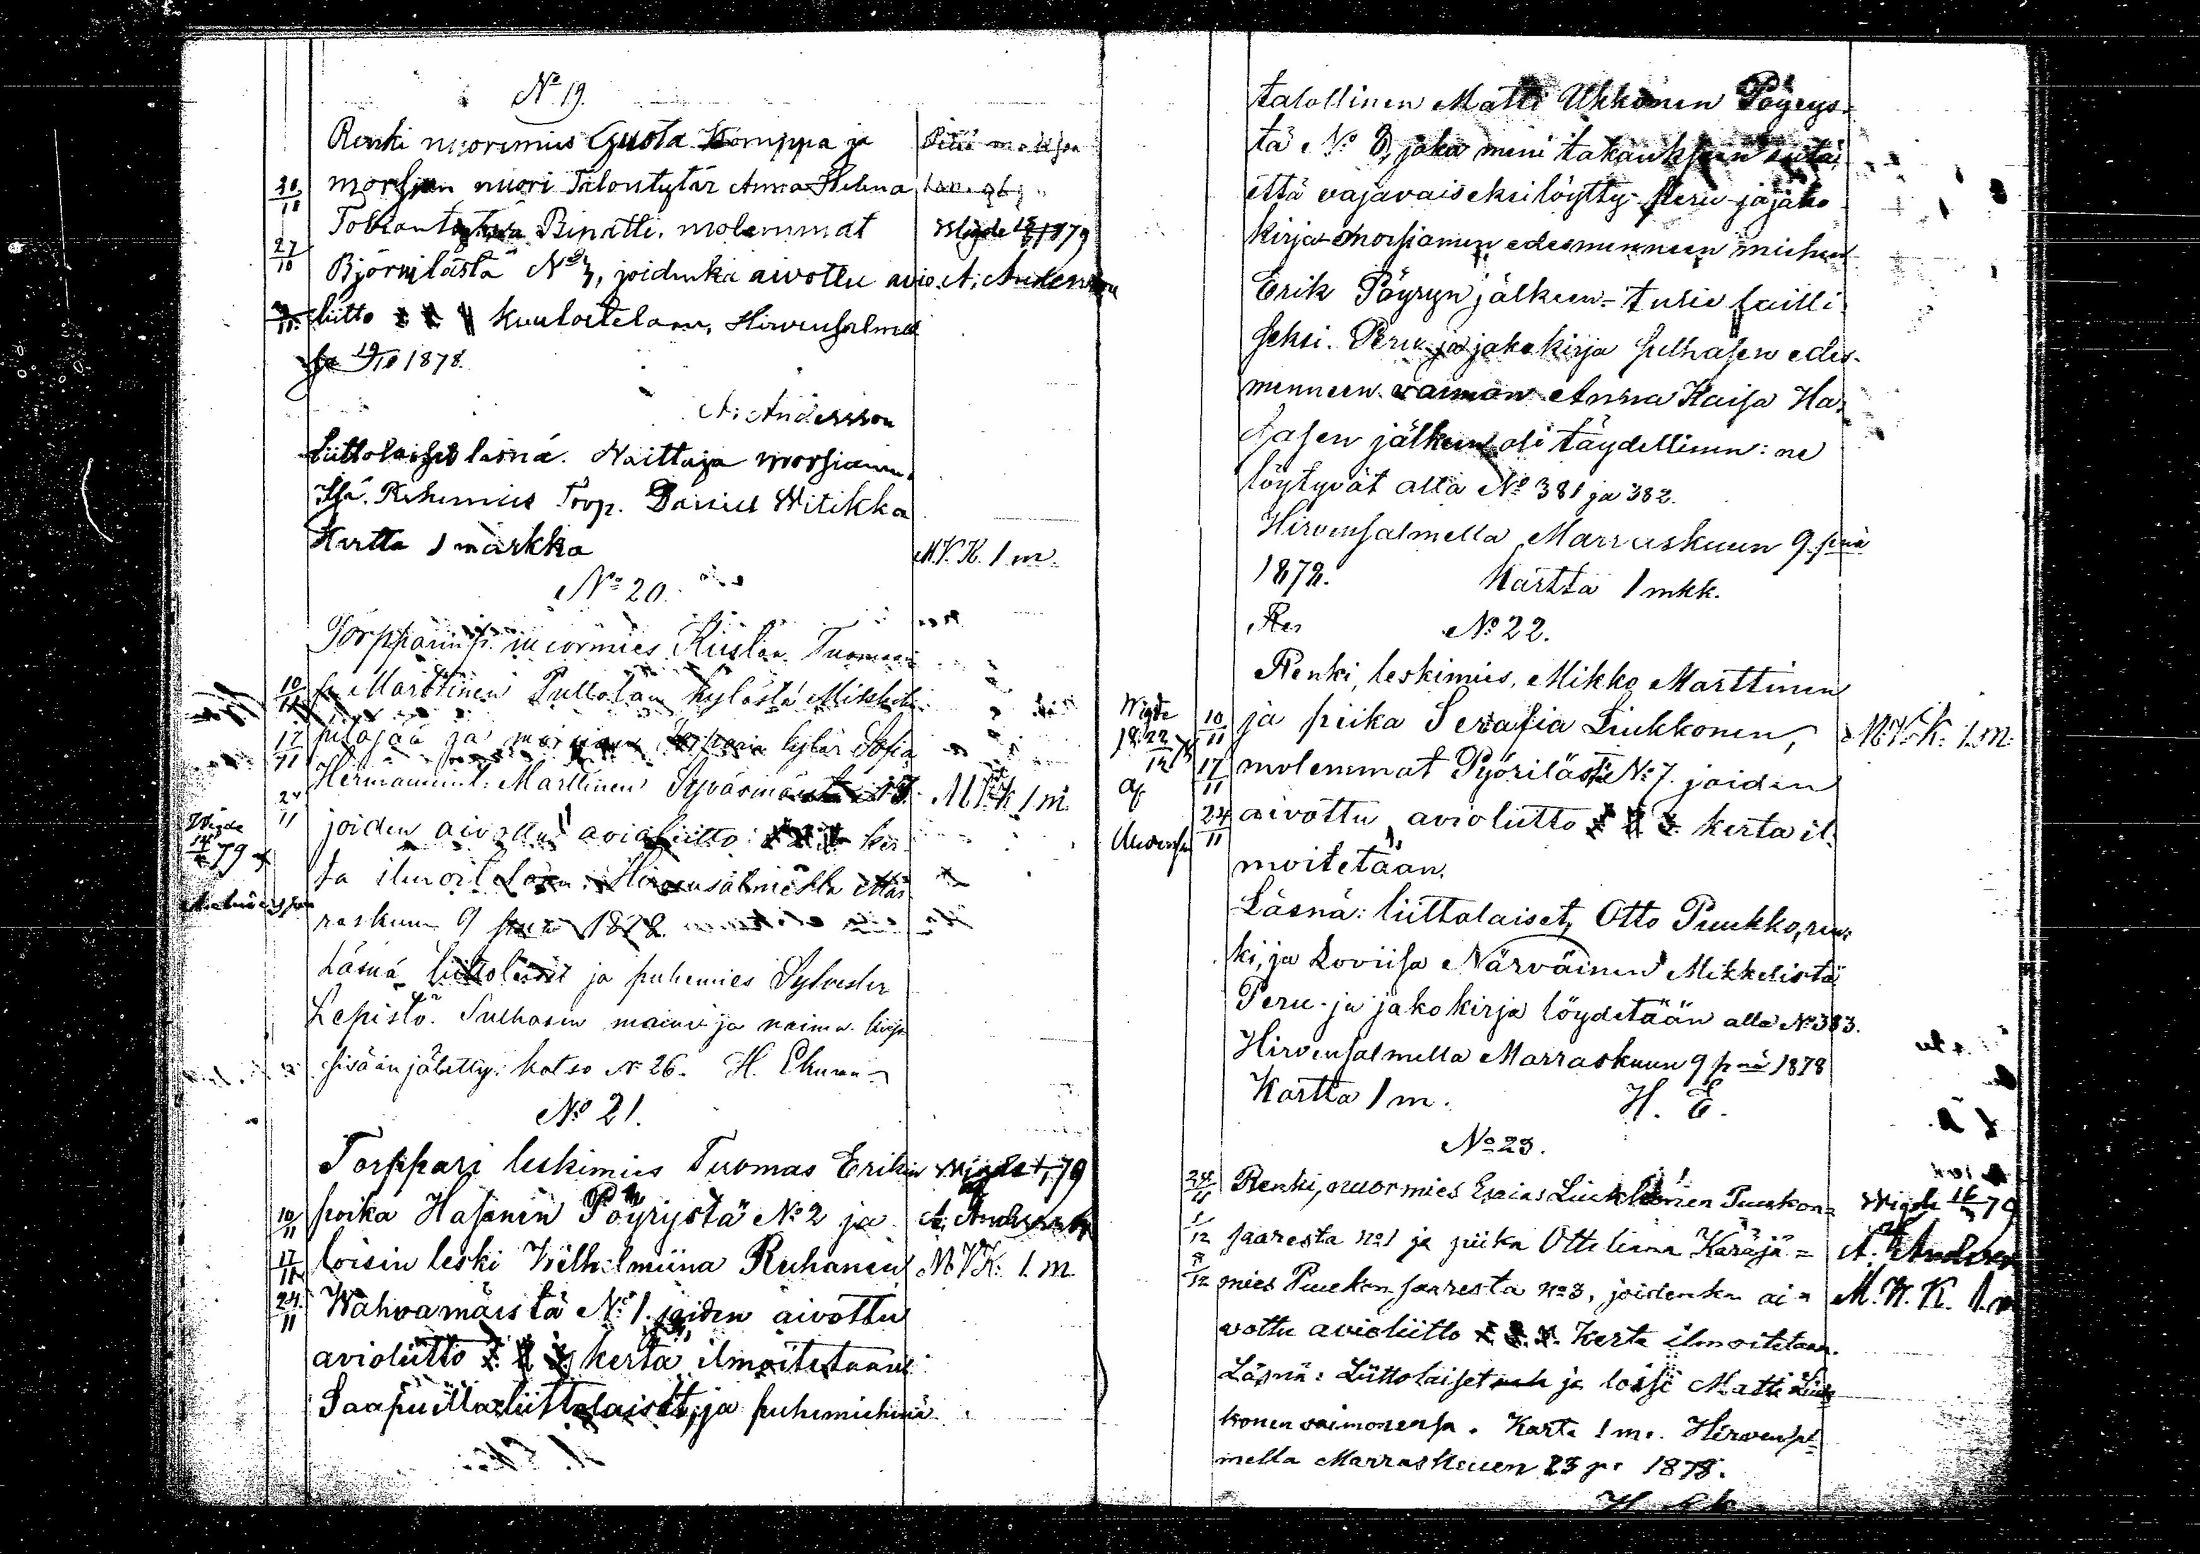 No 19.
Renki nuorimies Gusta Komppa ja
morsjan nuori Talontytär Anna Helena
Binatti. molemmat
Björnilästä No 7, joidenka aivottu avio
liitto I II kuulutetaan, Hirvensalmel
la 19/10 1878.
A. Andersson
20/10
27/10
3/11
wigde 1879
A. Andersson
Liittolaiset läsnä. Naittaja morsiamen
Isä. Puhemies Torp. Daniel Witikka
Kartta 1 markka
M.V.K. 1 m.
No 20.
nuormies Kustaa Tuomaan
p. Marttinen Pullolan kylästä Mikkelin
pitäjää ja morsian tytär Sofia
Hermannint. Marttinen
joiden aivottu avioliitto ker
ta ilmoitetaan. Hirvensalmella Mar
raskuun 9 pnä 1878.
Läsnä liittolaiset ja puhemies Sylvester
Lepistö. Sulhasen maine ja naima kirja
sisään jätetty: katso No 26. H. Ekman
10/11
17/11
24/11
M.V.K. 1 m
Wigde
79
No 21.
Torppari leskimies Tuomas Erikin
poika Hasanen Pöyrystä No 2 ja
loisin leski Wilhelmiina Ruhanen
Wahvamäistä No 1. joiden aivottu
avioliitto I II kerta ilmoitetaan
Saapuilla liittolaiset, ja puhemiehinä
10/11
17/11
24/11
wigde 79
A. Andersson
M.V.K. 1. m
talollinen Matti Ukkonen Pöyrys-
tä No 2, joka meni takaukseen siitä,
että vajavaiseksi löytty Peru- ja jako
kirja morsiamen edesmenneen miehen
Erik Pöyryn jälkeen tulee lailli
seksi. Peru ja jakokirja sulhasen edes-
menneen vaimon Anna Kaisa Ha-
sasen jälkeen oli täydellinen: ne
löytyvät alla No 381 ja 382.
Hirvensalmella Marraskuun 9 pnä
1878. Kartta 1 mkk.
Res
No 22.
Renki, leskimies, Mikko Marttinen
ja piika Serafia Liukkonen,
molemmat Pyörilästä No 7. joiden
aivottu avioliitto I II kerta il-
moitetaan.
Läsnä: liittolaiset, Otto Puukko, ren-
ki, ja Loviisa Närväinen Mikkelistä
Peru- ja jakokirja löydetään alla No 383.
Hirvensalmella Marraskuun 9 pnä 1878
Kartta 1 m. H. E.
Wigde
10/11
17/11
24/11
M.V.K. 1.m.
No 23.
Renki, nuormies Esaias Liukkonen Puukon-
saaresta no 1 ja piika Ottiliana Käräjä-
mies Puukonsaaresta no 3, joidenka ai-
vottu avioliitto I II kerta ilmoitetaan.
Läsnä: Liittolaiset ja loisi Matti Liuk
konen vaimonensa. Karta 1 m. Hirvensal-
mella Marraskuun 23 p. 1878.
24/11
1/12
8/12
Wigde 79
A. Anders
M.V.K. 1.m